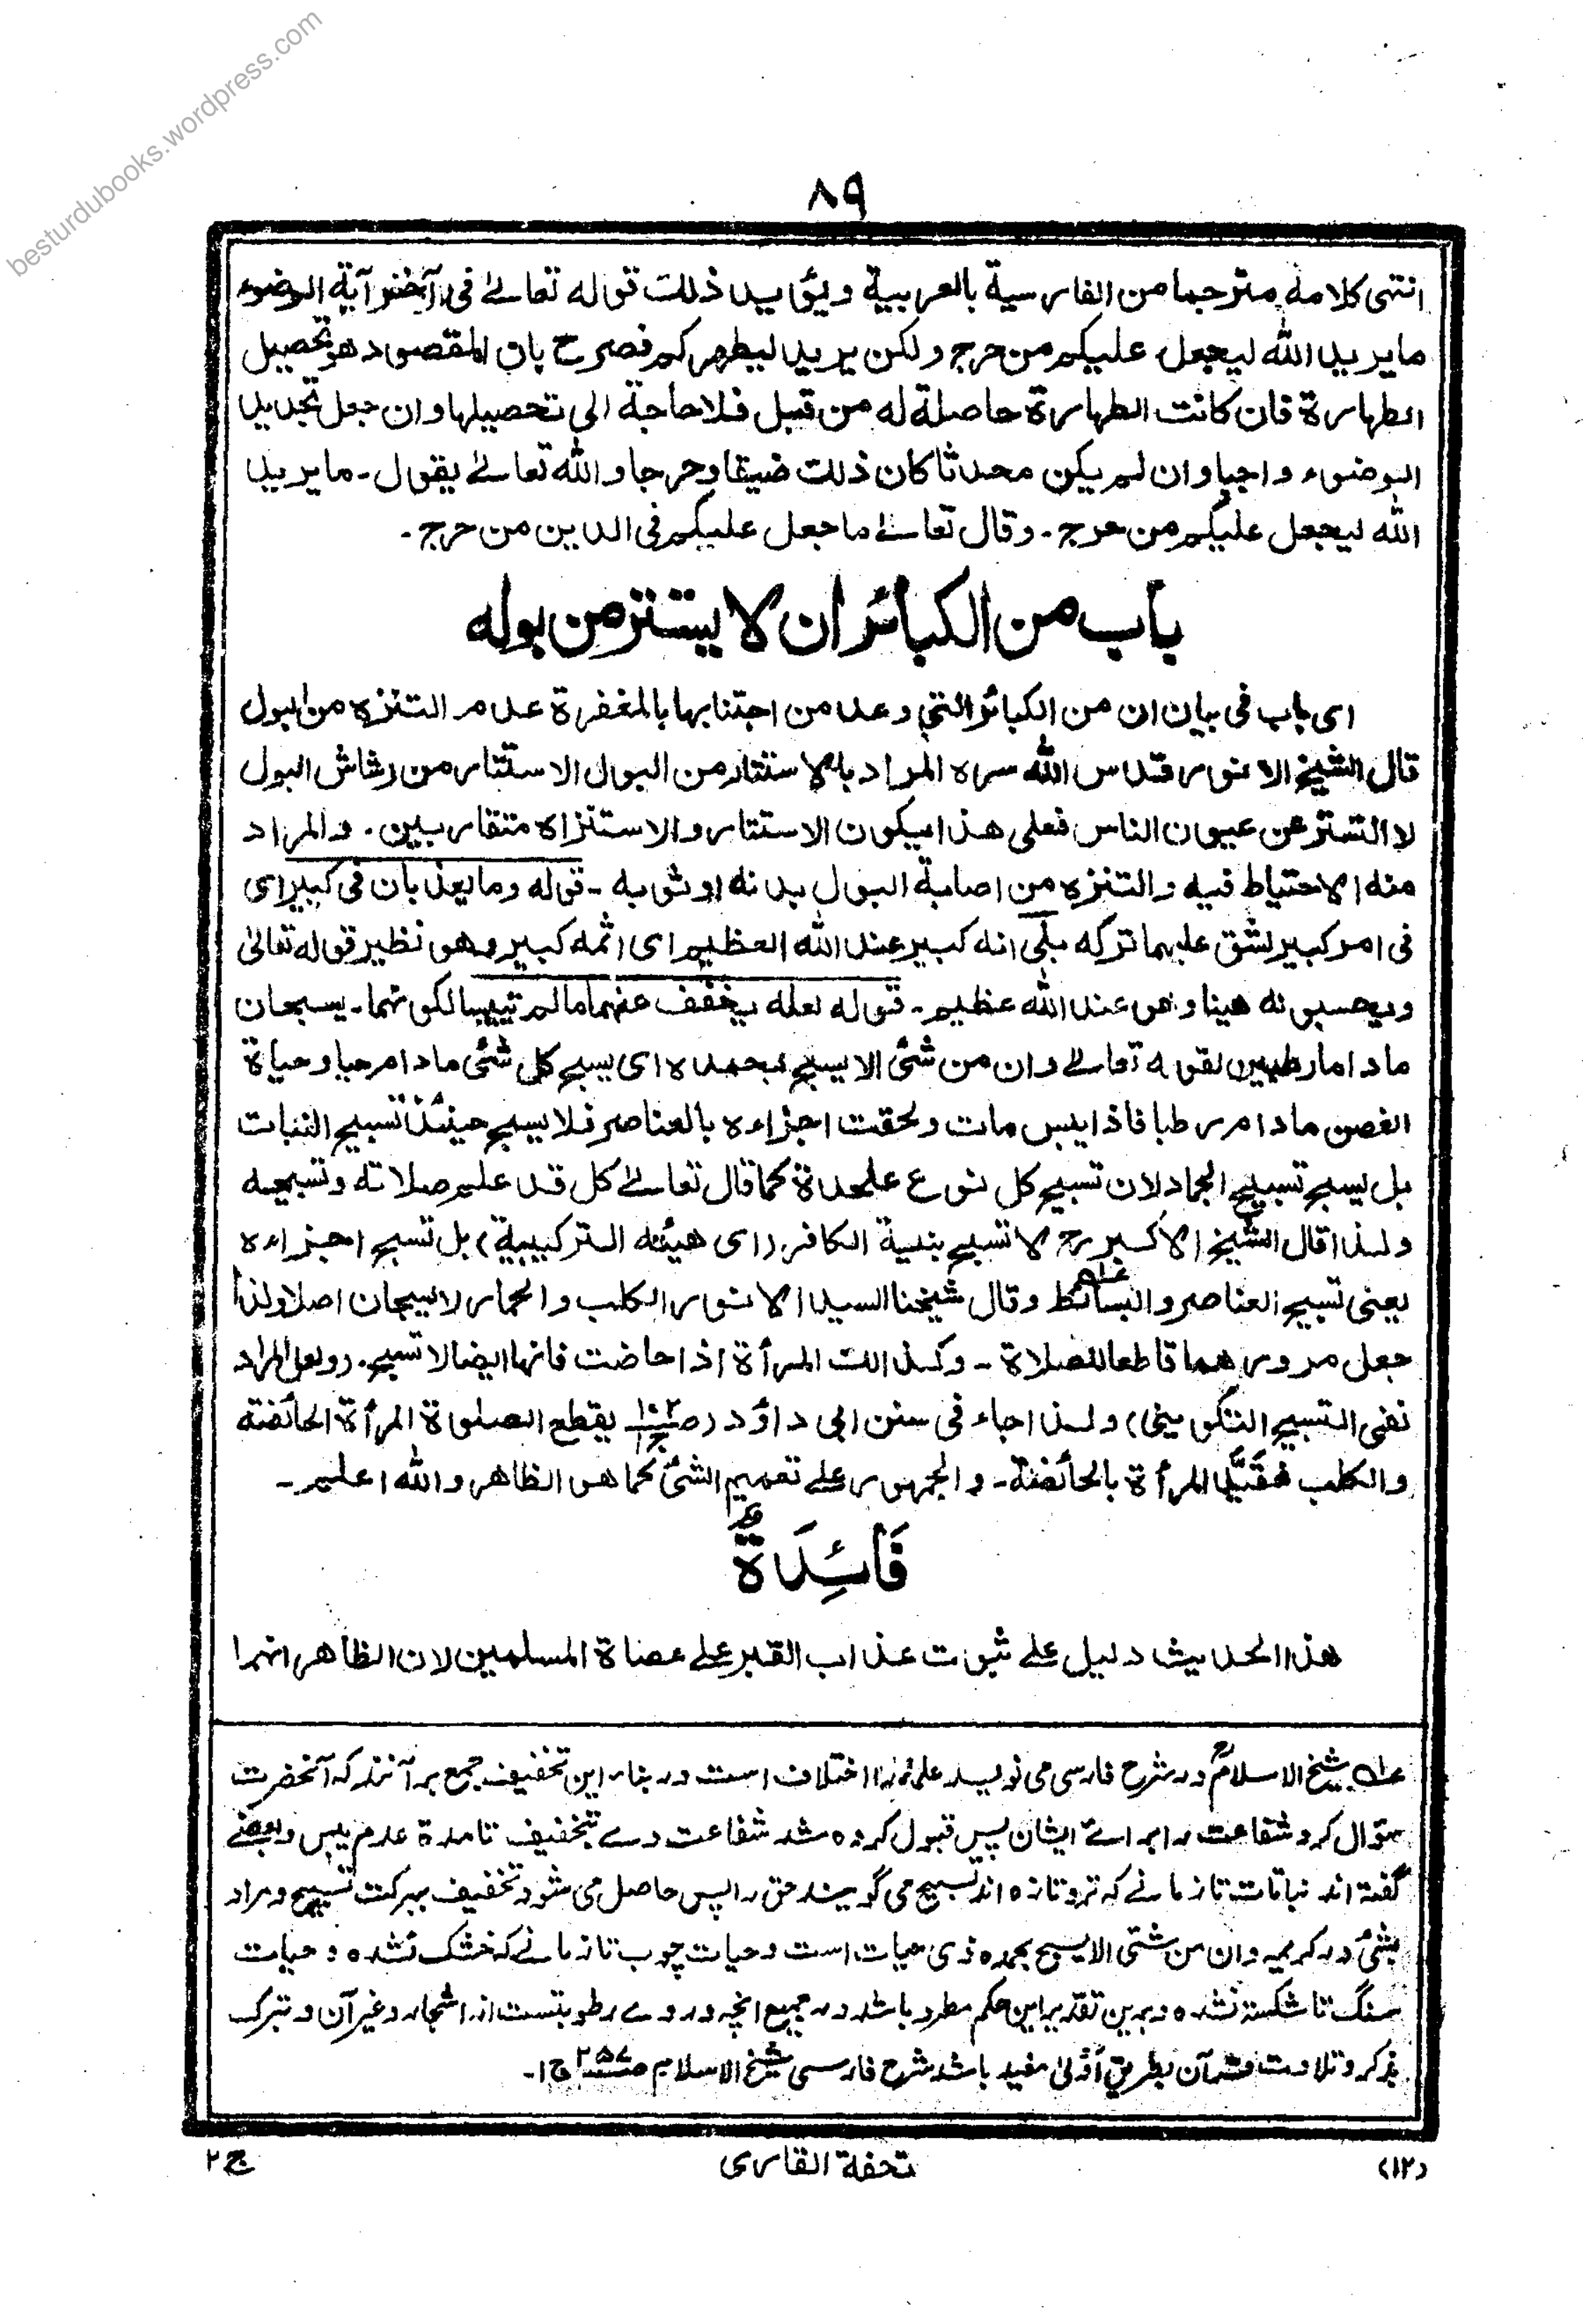 besturdubooks.wordpress.com
۸۹
انتهى كلامه مترجما من الفارسية بالعربية ويؤيد ذلك قوله تعالىٰ فى آخر آية الوضوء
ما يريد الله ليجعل عليكم من حرج ولكن يريد ليطهركم فصرح بان المقصود هو تحصيل
الطهارة فان كانت الطهارة حاصلة له من قبل فلا حاجة الى تحصيلها وان جعل تجديد
الوضوء واجبا وان لم يكن محدثا كان ذلك ضيقا وحرجا والله تعالىٰ يقول ـ ما يريد
الله ليجعل عليكم من حرج ـ وقال تعالىٰ ما جعل عليكم فى الدين من حرج ـ
باب من الكبائر ان لا يستتر من بوله
اى باب فى بيان ان من الكبائر التى وعد من اجتنابها بالمغفرة عدم التنزه من البول
قال الشيخ الانور قدس الله سره المراد بالاستتار من البول الاستتار من رشاش البول
لا التستر عن عيون الناس فعلى هذا يكون الاستتار والاستنزاه متقاربين ـ والمراد
منه الاحتياط فيه والتنزه من اصابة البول بدنه او ثوبه ـ قوله وما يعذبان فى كبير اى
فى امر كبير يشق عليهما تركه بلى انه كبير عند الله العظيم اى اثمه كبير وهو نظير قوله تعالىٰ
ويحسبونه هينا وهو عند الله عظيم ـ قوله لعله يخفف عنهما ما لم تيبسا لكونهما ـ يسبحان
ما داما رطبين لقوله تعالىٰ وان من شئ الا يسبح بحمده اى يسبح كل شئ ما دام حيا وحياة
الغصن ما دام رطبا فاذا يبس مات ولحقت اجزاءه بالعناصر فلا يسبح حينئذ تسبيح النبات
بل يسبح تسبيح الجماد لان تسبيح كل نوع علحدة كما قال تعالىٰ كل قد علم صلاته وتسبيحه
ولذا قال الشيخ الاكبر رح لا تسبح بنية الكافر (اى هيئته التركيبية) بل تسبح اجزاءه
يعنى تسبيح العناصر والبسائط عله وقال شيخنا السيد الانور الكلب والحمار لا يسبحان اصلا ولذا
جعل مرورهما قاطعا للصلاة ـ وكذلك المرأة اذا حاضت فانها ايضا لا تسبح ـ (ولعل المراد
نفى التسبيح التكوينى) ولذا جاء فى سنن ابى داؤد (ص۱۰۲ ج۱) يقطع الصلوة المرأة الحائضة
والكلب فقيد المرأة بالحائضة ـ والجمهور على تعميم الشئ كما هو الظاهر والله اعلم ـ
فَائِدَةٌ
هذا الحديث دليل على ثبوت عذاب القبر على عصاة المسلمين لان الظاهر انهما
عله شيخ الاسلامؒ در شرح فارسى مى نويسد علماء را اختلاف است در بناء اين تخفيف جمع بر آنند كه آنحضرت
سؤال كرد شفاعت را برائے ايشان پس قبول كرده شد شفاعت وے بتخفيف تا مدة عدم يبس وبعضے
گفته اند نباتات تا زمانے كه تر و تازه اند تسبيح مى گويند حق را پس حاصل مى شود تخفيف ببركت تسبيح ومراد
بشئ در كريمه وان من شئ الا يسبح بحمده ذى حيات است وحيات چوب تا زمانے كه خشك نشده وحيات
سنگ تا شكسته نشده وبرين تقدير اين حكم مطرد باشد در جميع انچه در وے رطوبتست از اشجار وغير آن وتبرك
بذكر وتلاوت قرآن بطريق اَوْلىٰ مفيد باشد شرح فارسى شيخ الاسلام ص۲۵۷ ج۱ـ
(۱۲)
تحفة القارى
ج۲